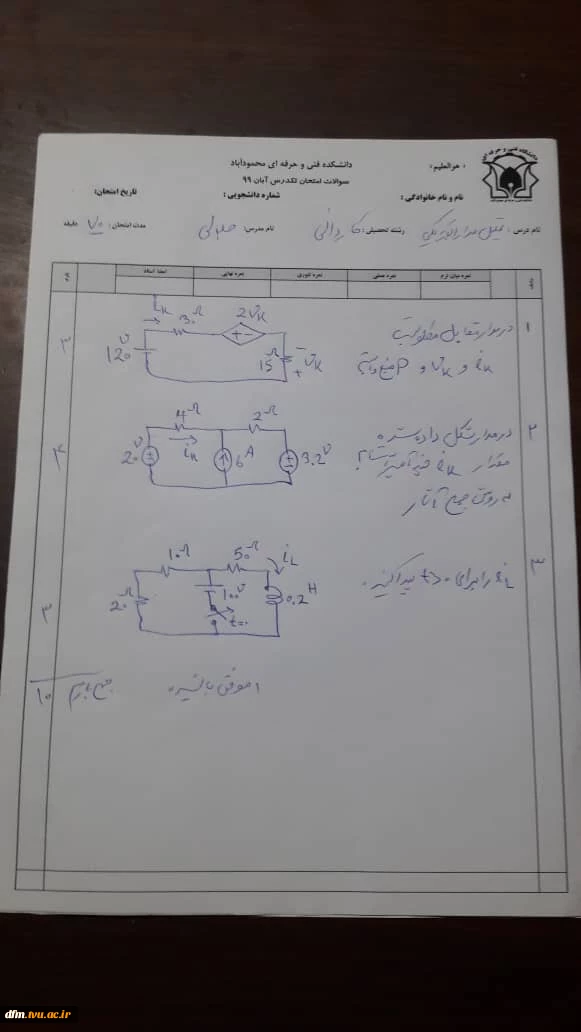 دانشگاه فنی و حرفه ای
هوالعلیم:
دانشکده فنی و حرفه ای محمودآباد
سوالات امتحان تکدرس آبان ۹۹
نام و نام خانوادگی :
شماره دانشجویی :
تاریخ امتحان:
نام درس : تحلیل مدار الکتریکی
رشته تحصیلی : کاردانی
نام مدرس:
مدت امتحان : ۷۰ دقیقه
نمره میان ترم
نمره عملی
نمره تئوری
نمره نهایی
امضا استاد
۱ در مدار مقابل مطلوبست
iₖ و vₖ و P منبع وابسته
iₖ
30Ω
2vₖ
120V
15Ω
- vₖ +
۳
۲ در مدار شکل داده شده
مقدار iₖ چند آمپر است؟
به روش جمع آثار
4Ω
2Ω
20V
iₖ
6A
3.2V
۴
۳ iL را برای t>0 پیدا کنید.
10Ω
50Ω
iL
20Ω
100V
0.2H
t=0
۳
موفق باشید
جمع بارم ۱۰
dfm.tvu.ac.ir